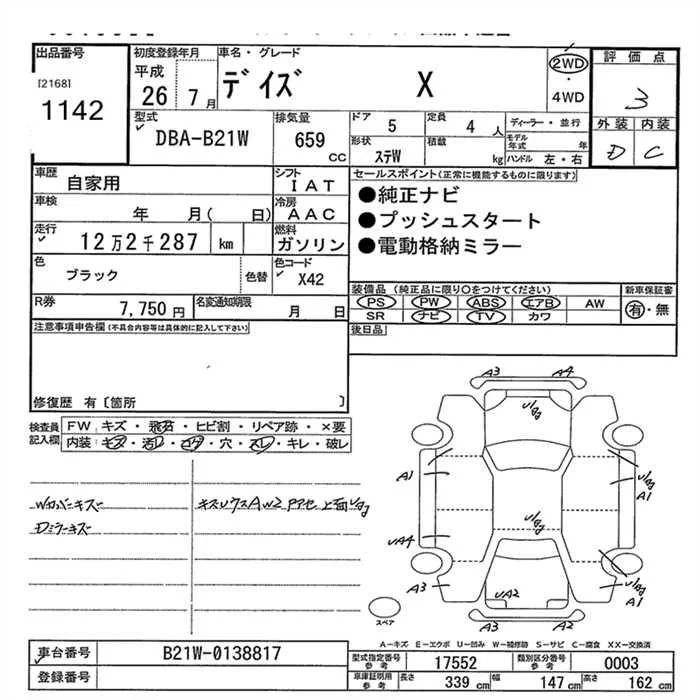 出品番号
[2168]
1142
初度登録年月
平成
26 7月
車名・グレード
デイズ X
2WD
・
4WD
評価点
3
外装 内装
D C
型式
DBA-B21W
排気量
659
CC
ドア 5
定員 4 人
ディーラー・並行
形状
ステW
積載 kg
モデル年式 年
ハンドル 左・右
車歴
自家用
シフト
IAT
セールスポイント(正常に機能するものに限ります)
●純正ナビ
●プッシュスタート
●電動格納ミラー
車検
年 月( 日)
冷房
AAC
走行
12万2千287 km
燃料
ガソリン
色
ブラック
色替
色コード
X42
装備品 (純正品に限り〇をつけてください)
新車保証書
PS PW ABS エアB AW
有・無
SR ナビ TV カワ
R券
7,750円
名変通知期限
月 日
後日品
注意事項申告欄(不具合内容等は具体的に記入して下さい)
修復歴 有〔箇所 〕
検査員
記入欄
FW キズ・飛石・ヒビ割・リペア跡・×要
内装:キズ・汚レ・コゲ・穴・スレ・キレ・破レ
Wカバーキズ
Dミラーキズ
A3 A4
A1
A1
UA4
A3
UA2
A1
A3 A2
スペア
A-キズ E-エクボ U-凹み W-補修跡 S-サビ C-腐食 XX-交換済
車台番号
B21W-0138817
登録番号
型式指定番号
参考
17552
類別区分番号
参考
0003
車庫証明用
参考
長さ 339 cm
幅 147 cm
高さ 162 cm